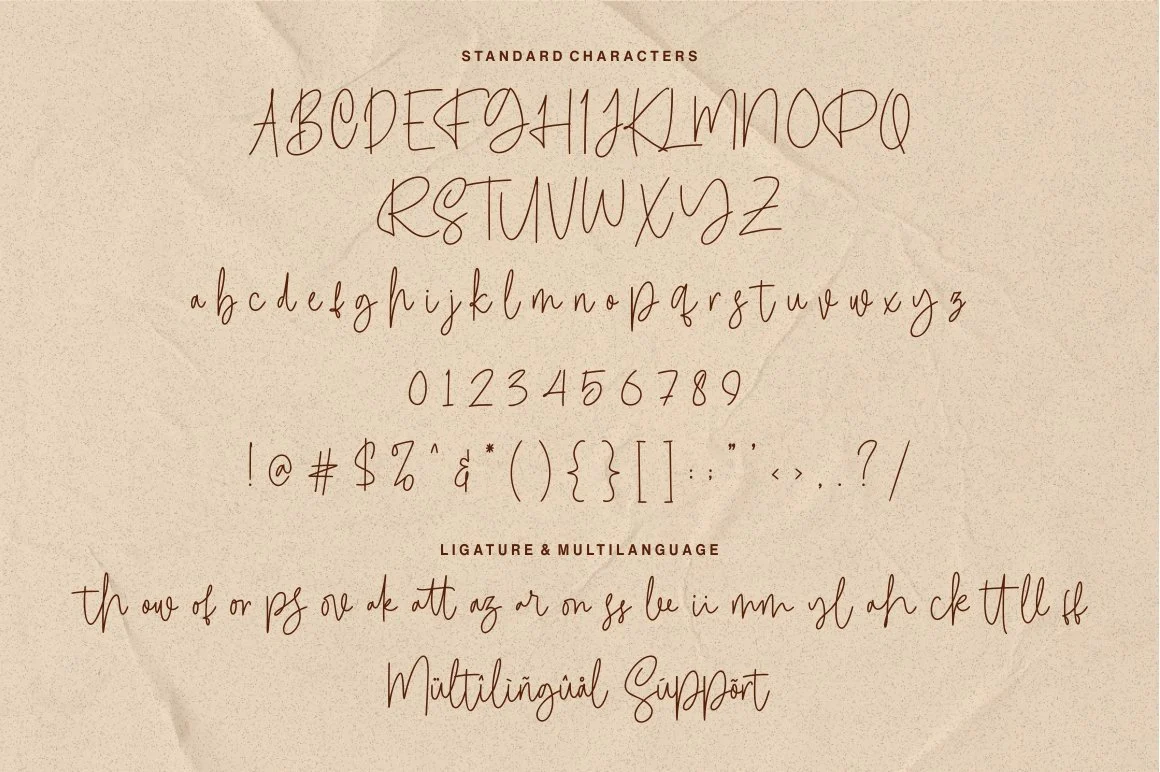 STANDARD CHARACTERS
ABCDEFGHIJKLMNOPQ
RSTUVWXYZ
a b c d e f g h i j k l m n o p q r s t u v w x y z
0 1 2 3 4 5 6 7 8 9
! @ # $ % ^ & * ( ) { } [ ] : ; " ' < > , . ? /
LIGATURE & MULTILANGUAGE
th ow of or ps ov ak att az ar on ss be ii mm yl ah ck tt ll ff
Mültîlìñgûål Súppõrt